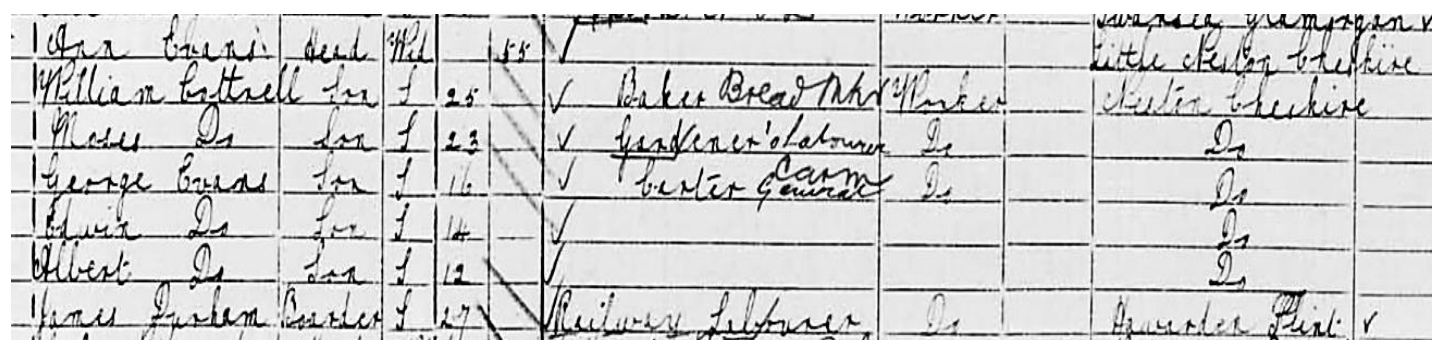 Swansea Glamorgan
Ann Evans Head Wid 55 Little Neston Cheshire
William Cottrell Son S 25 Baker Bread Mkr Worker Neston Cheshire
Moses Do Son S 23 Gardener's Labourer Do Do
George Evans Son S 16 Carter General Carm Do Do
Edwin Do Son S 14 Do
Albert Do Son S 12 Do
James Durham Boarder S 27 Railway Labourer Do Hawarden Flint